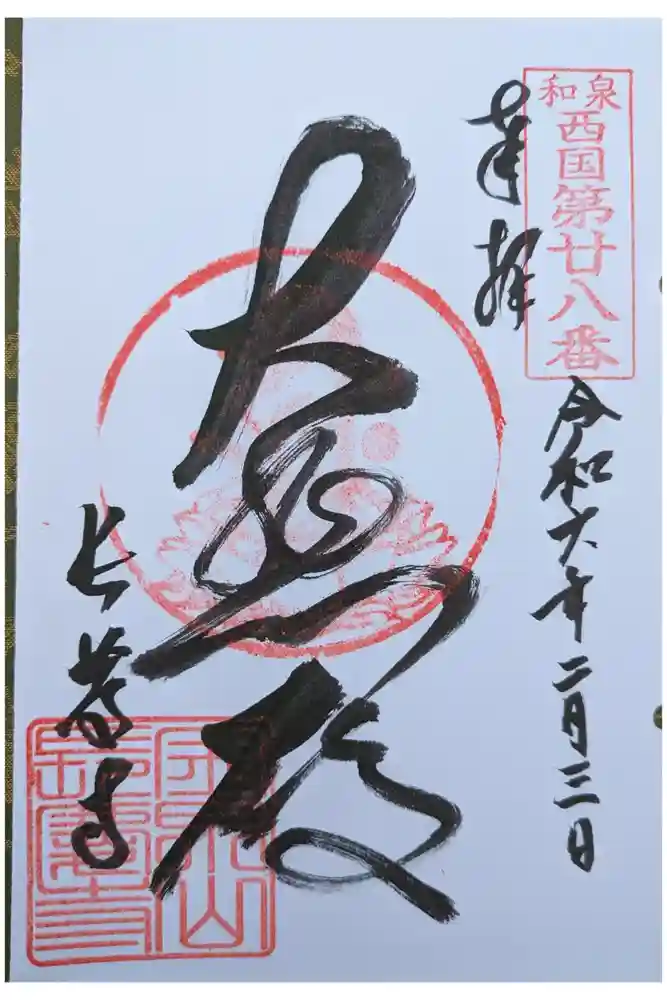 和泉
西国第廿八番
奉拝
令和六年二月三日
大悲殿
長慶寺
長慶寺